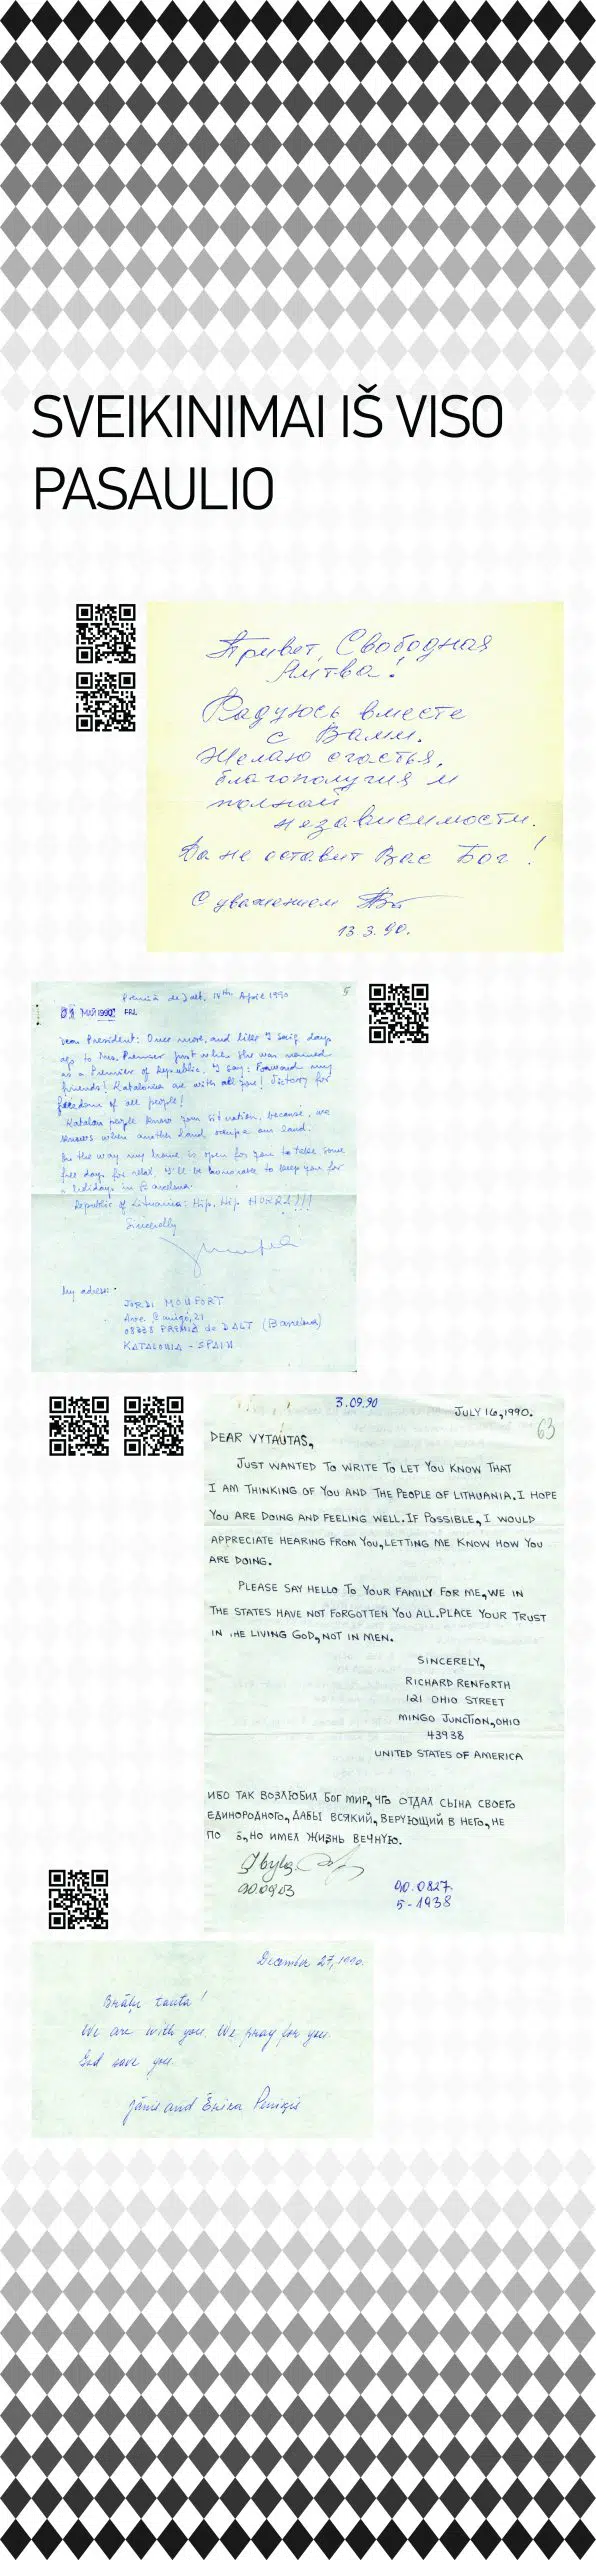 SVEIKINIMAI IŠ VISO
PASAULIO
Привет, Свободная
Литва!
Радуюсь вместе
с Вами.
Желаю счастья,
благополучия и
полной
независимости.
Да не оставит Вас Бог!
С уважением
13.3.90.
Premià de Dalt, 18th April 1990
5
MAЙ 1990
Dear President: Once more, and like I said days
ago to Mrs. Premier just when she was named
as a Premier of Republic, I say: Forward my
friends! Katalonia are with all you! Victory for
freedom of all people!
Katalan people know your situation, because, we
knows when another land occupe our land.
By the way my home is open for you to take some
free days for relax. I'll be honorable to keep you for
a holidays in Barcelona.
Republic of Lithuania: Hip, Hip HURRA!!!
Sincerelly
My adress:
JORDI MONFORT
Avre. Canigó, 21
08338 PREMIÀ de DALT (Barcelona)
KATALONIA - SPAIN
3.09.90
JULY 16, 1990.
63
DEAR VYTAUTAS,
JUST WANTED TO WRITE TO LET YOU KNOW THAT
I AM THINKING OF YOU AND THE PEOPLE OF LITHUANIA. I HOPE
YOU ARE DOING AND FEELING WELL. IF POSSIBLE, I WOULD
APPRECIATE HEARING FROM YOU, LETTING ME KNOW HOW YOU
ARE DOING.
PLEASE SAY HELLO TO YOUR FAMILY FOR ME, WE IN
THE STATES HAVE NOT FORGOTTEN YOU ALL. PLACE YOUR TRUST
IN THE LIVING GOD, NOT IN MEN.
SINCERELY,
RICHARD RENFORTH
121 OHIO STREET
MINGO JUNCTION, OHIO
43938
UNITED STATES OF AMERICA
ИБО ТАК ВОЗЛЮБИЛ БОГ МИР, ЧТО ОТДАЛ СЫНА СВОЕГО
ЕДИНОРОДНОГО, ДАБЫ ВСЯКИЙ, ВЕРУЮЩИЙ В НЕГО, НЕ
ПО Б, НО ИМЕЛ ЖИЗНЬ ВЕЧНУЮ.
90.09.03
90.0827.
5-1938
December 27, 1990.
Brāļu tauta!
We are with you. We pray for you.
God save you.
Jānis and Ērika